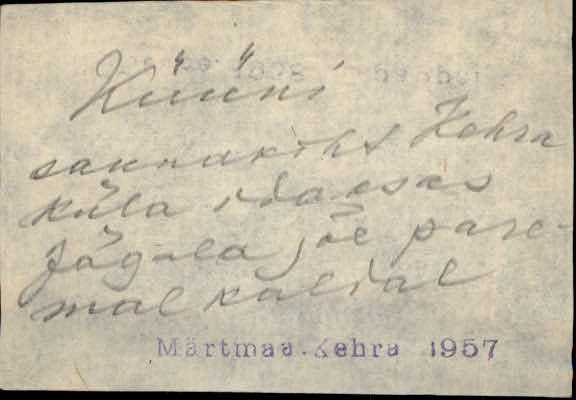 Küüni
saunakoht Kehra
küla idaosas
Jõgala jõe pare-
mal kaldal
Märtmaa.Kehra 1957